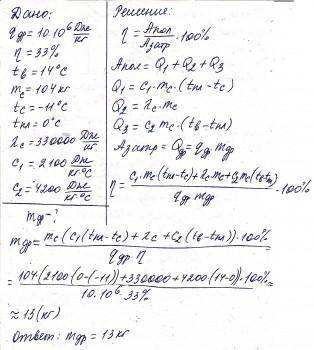 Дано:
qдр = 10·10⁶ Дж/кг
η = 33%
tв = 14°C
mс = 104 кг
tс = -11°C
tпл = 0°C
λс = 330000 Дж/кг
c₁ = 2100 Дж/кг·°C
c₂ = 4200 Дж/кг·°C
mдр - ?
Решение:
η = Aпол/Aзатр · 100%
Aпол = Q₁ + Q₂ + Q₃
Q₁ = c₁ mс·(tпл - tс)
Q₂ = λс·mс
Q₃ = c₂ mс·(tв - tпл)
Aзатр = Qдр = qдр mдр
η = c₁mс(tпл - tс) + λс mс + c₂mс(tв - tпл)/qдр mдр · 100%
mдр = mс(c₁(tпл - tс) + λс + c₂(tв - tпл))·100%/qдр η =
= 104(2100(0-(-11)) + 330000 + 4200(14-0))·100%/10·10⁶·33% ≈
≈ 13 (кг)
Ответ: mдр = 13 кг